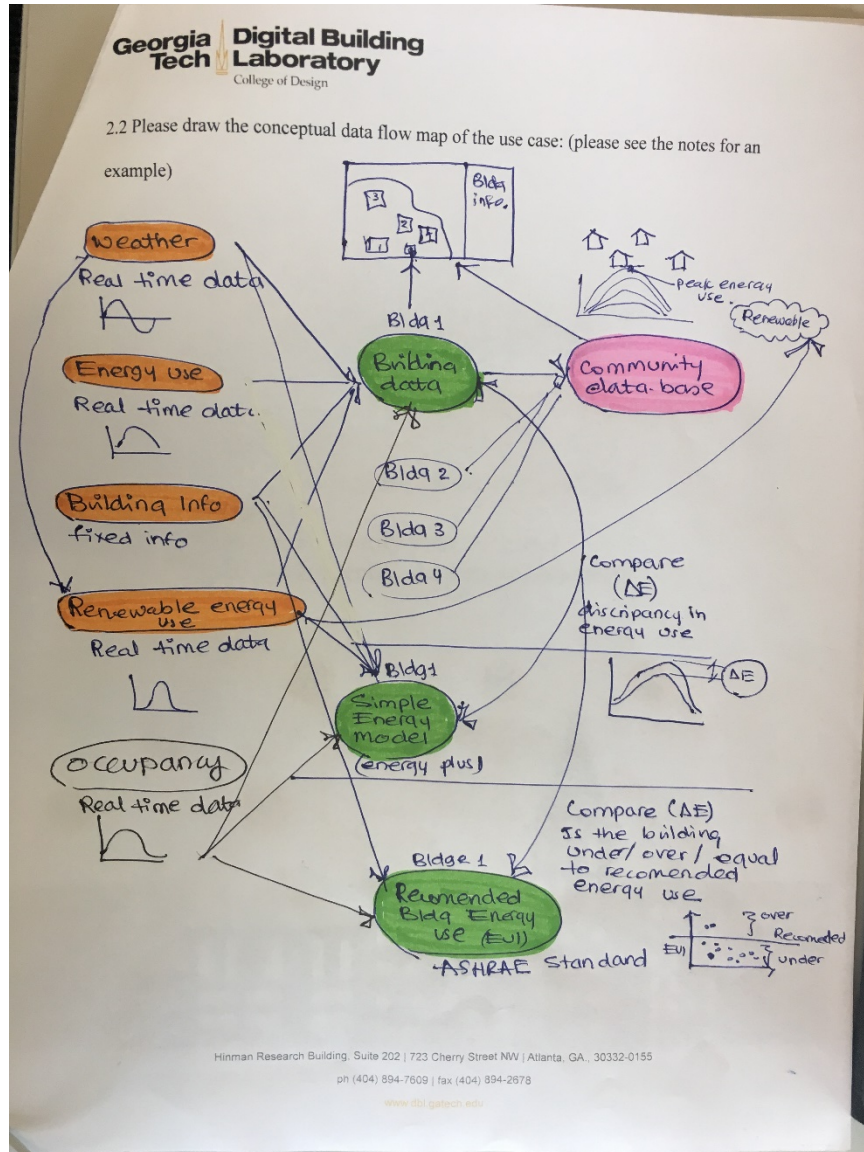 Georgia Tech
Digital Building Laboratory
College of Design
2.2 Please draw the conceptual data flow map of the use case: (please see the notes for an
example)
Bldg info.
3
2
4
1
weather
Real time data
Energy use
Real time data
Building Info
fixed info
Renewable energy use
Real time data
occupancy
Real time data
Bldg 1
Building data
Bldg 2
Bldg 3
Bldg 4
Community data-base
peak energy use.
Renewable
Compare
(ΔE)
discripancy in
energy use
ΔE
Bldg 1
Simple
Energy
model
(energy plus)
Compare (ΔE)
Is the building
under/over/equal
to recomended
energy use
Bldge 1
Recomended
Bldg Energy
use (EUI)
ASHRAE Standard
EUI
over
Recomeded
under
Hinman Research Building, Suite 202 | 723 Cherry Street NW | Atlanta, GA., 30332-0155
ph (404) 894-7609 | fax (404) 894-2678
www.dbl.gatech.edu